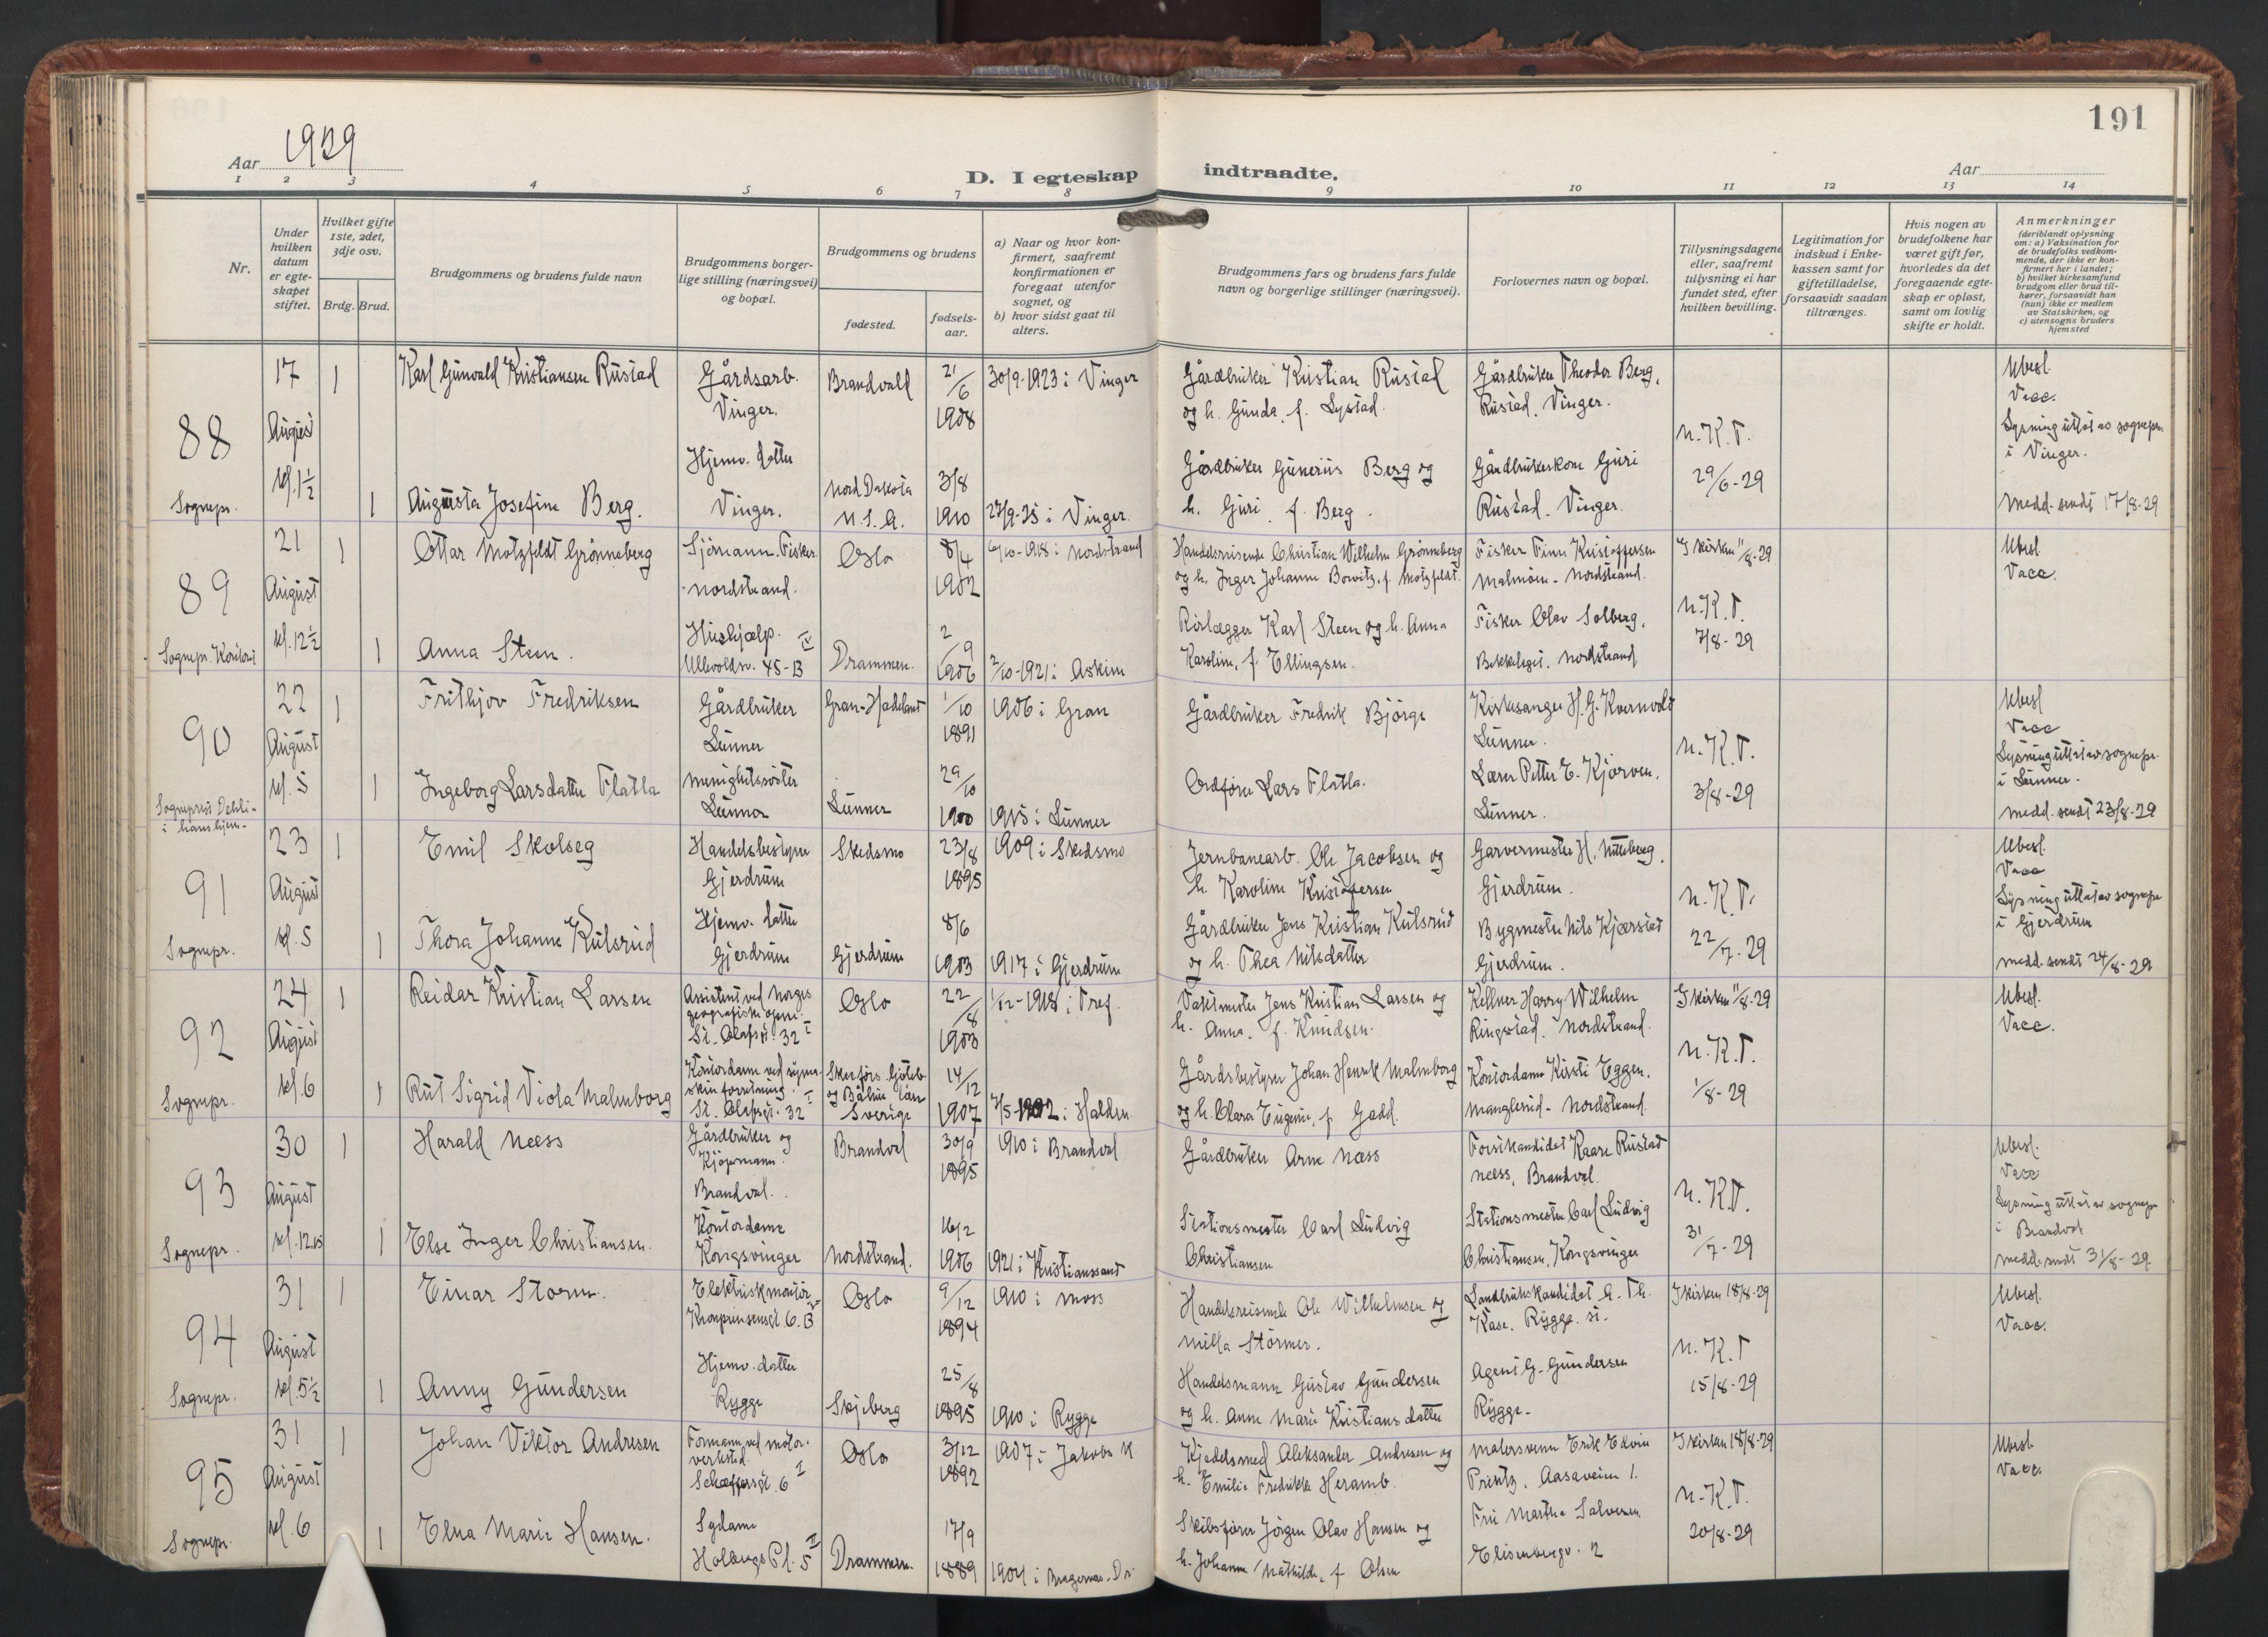 191
Aar 1929
D. I egteskap indtraadte.
Aar
1 2 3 4 5 6 7 8 9 10 11 12 13 14
Nr.
Under hvilken datum er egteskapet stiftet.
Hvilket gifte 1ste, 2det, 3dje osv.
Brdg. Brud.
Brudgommens og brudens fulde navn
Brudgommens borgerlige stilling (næringsvei) og bopæl.
Brudgommens og brudens
fødested.
fødselsaar.
a) Naar og hvor konfirmert, saafremt konfirmationen er foregaat utenfor sognet, og
b) hvor sidst gaat til alters.
Brudgommens fars og brudens fars fulde navn og borgerlige stillinger (næringsvei).
Forlovernes navn og bopæl.
Tillysningsdagene eller, saafremt tillysning ei har fundet sted, efter hvilken bevilling.
Legitimation for indskud i Enkekassen samt for giftetilladelse, forsaavidt saadan tiltrænges.
Hvis nogen av brudefolkene har været gift før, hvorledes da det foregaaende egteskap er opløst, samt om lovlig skifte er holdt.
Anmerkninger (deriblandt oplysning om: a) Vaksination for de brudefolks vedkommende, der ikke er konfirmert her i landet; b) hvilket kirkesamfund brudgom eller brud tilhører, forsaavidt han (hun) ikke er medlem av Statskirken, og c) utensogns bruders hjemsted
88
Sognepr.
17 August kl. 1 1/2
1 Karl Gunvald Kristiansen Rustad
Gårdsarb. Vinger.
Brandvald
21/6 1908
30/9-1923 i Vinger
Gårdbruker Kristian Rustad
og h. Gunda, f. Lystad.
Gårdbruker Theodor Berg,
Rustad, Vinger.
1 Augusta Josefine Berg.
Hjemv. datter
Vinger.
Nord Dakota
U.S.A.
3/8 1910
27/9-25 i Vinger.
Gårdbruker Gunerius Berg og
h. Guri f. Berg.
Gårdbrukerkone Guri
Rustad. Vinger.
N.K.T.
29/6-29
Ubesl.
Vacc.
Lysning uttat av sognepr.
i Vinger.
Medd. sendt 17/8-29
89
Sognepr. Kontor
21 August kl. 12 1/2
1 Ottar Motzfeldt Grønneberg
Sjömann. Fisker
Nordstrand.
Oslo
8/4 1902
6/10-1918 i Nordstrand
Handelsreisende Christian Wilhelm Grønneberg
og h. Inger Johanne Borwitz, f. Motzfeldt.
Fisker Finn Kristoffersen
Malmöen - Nordstrand.
I kirken 11/8-29
1 Anna Steen.
Hushjelp.
Ullevoldsv. 45-B IV
Drammen.
2/9 1906
2/10-1921 i Askim
Rörlægger Karl Steen og h. Anna
Karoline, f. Ellingsen.
Fisker Olav Solberg,
Bekkelaget. Nordstrand
N.K.T.
7/8-29
Ubesl
Vacc.
90
Sogneprest Dehli
i hans hjem
22 August kl. 5
1 Frithjov Fredriksen
Gårdbruker
Lunner
Gran-Hadeland
1/10 1891
1906 i Gran
Gårdbruker Fredrik Björge
Kirkesanger H. G. Kvernvold
Lunner.
1 Ingeborg Larsdatter Flatla
Menighetssöster
Lunner
Lunner
29/10 1900
1915 i Lunner
Ordförer Lars Flatla.
Lærer Petter E. Kjorven.
Lunner.
N.K.T.
3/8-29
Ubesl
Vacc
Lysning uttat av sognepr.
i Lunner.
Medd. sendt 23/8-29
91
Sognepr.
23 August kl. 5
1 Emil Skolseg
Handelsbestyrer
Gjerdrum
Skedsmo
23/8 1895
1909 i Skedsmo
Jernbanearb. Ole Jacobsen og
h. Karoline Kristofersen
Garvermester H. Nitteberg.
Gjerdrum.
1 Thora Johanne Kulsrud
Hjemv. datter
Gjerdrum
Gjerdrum
8/6 1903
1917 i Gjerdrum
Gårdbruker Jens Kristian Kulsrud
og h. Thea Nilsdatter
Bygmester Nils Kjærstad
Gjerdrum.
N.K.T.
22/7-29
Ubesl.
Vacc
Lysning uttat av sognepr
i Gjerdrum
Medd. sendt 24/8-29
92
Sognepr.
24 August kl. 6
1 Reidar Kristian Larsen
Assistent ved Norges
geografiske opm.
St. Olafsgt. 32 I
Oslo
22/8 1903
1/12-1918 i Tref.
Vaktmester Jens Kristian Larsen og
h. Anna. f. Knudsen.
Kellner Harry Wilhelm
Ringstad. Nordstrand.
I kirken 11/8-29
1 Rut Sigrid Viola Malmborg
Kontordame ved symaskin forretning.
St. Olafsgt. 32 I
Göteb. og Båhus län
Sverige
14/12 1907
i Halden.
Gårdsbestyrer Johan Henrik Malmborg
og h. Clara Eugenie, f. Gadd.
Kontordame Kirsti Eggen.
Manglerud - Nordstrand.
N.K.T.
1/8-29
Ubesl.
Vacc.
93
Sognepr.
30 August kl. 12.05
1 Harald Næss
Gårdbruker og
Kjöpmann.
Brandval.
Brandval
30/9 1895
1910 i Brandval
Gårdbruker Arne Næss
Forstkandidat Kaare Rustad
Næss, Brandval.
1 Else Inger Christiansen.
Kontordame
Kongsvinger
Nordstrand.
16/2 1906
1921 i Kristianssand
Stationsmester Carl Ludvig
Christiansen
Stationsmester Carl Ludvig
Christiansen, Kongsvinger
N.K.T.
31/7-29
Ubesl.
Vacc
Lysning uttat av sognepr
i Brandval
Medd. sendt 31/8-29
94
Sognepr.
31 August kl. 5 1/2
1 Einar Storm.
Elektrisk montör
Kronprinsensgt 6.B
Oslo
9/12 1894
1910 i Moss
Handelsreisende Ole Wilhelmsen og
Milla Störmer.
Landbrukskandidat A. Th.
Kase. Rygge st.
I kirken 18/8-29
1 Anny Gundersen
Hjemv. datter
Rygge
Skjeberg
25/8 1895
1910 i Rygge
Handelsmann Gustav Gundersen
og h. Anne Marie Kristiansdatter
Agent G. Gundersen
Rygge.
N.K.T
15/8-29
Ubesl.
Vacc.
95
Sognepr.
31 August kl. 6
1 Johan Viktor Andresen
Formann ved motorverksted.
Schæffersgt. 6 I
Oslo
3/12 1892
1907 i Jakobs K.
Kjedelsmed Aleksander Andresen og
h. Emilie Fredrikke Heramb.
Malersvenn Erik Edvin
Printz. Aasaveien 1.
I kirken 18/8-29
1 Elna Marie Hansen.
Sydame
Holbergs Pl. 5 II
Drammen.
17/9 1889
1904 i Bragernes. Dr.
Skibsförer Jörgen Olav Hansen og
h. Johanne Mathilde, f Olsen
Fru Martha Salvesen
Elisenbergv. 2
N.K.T.
20/8-29
Ubesl
Vacc.